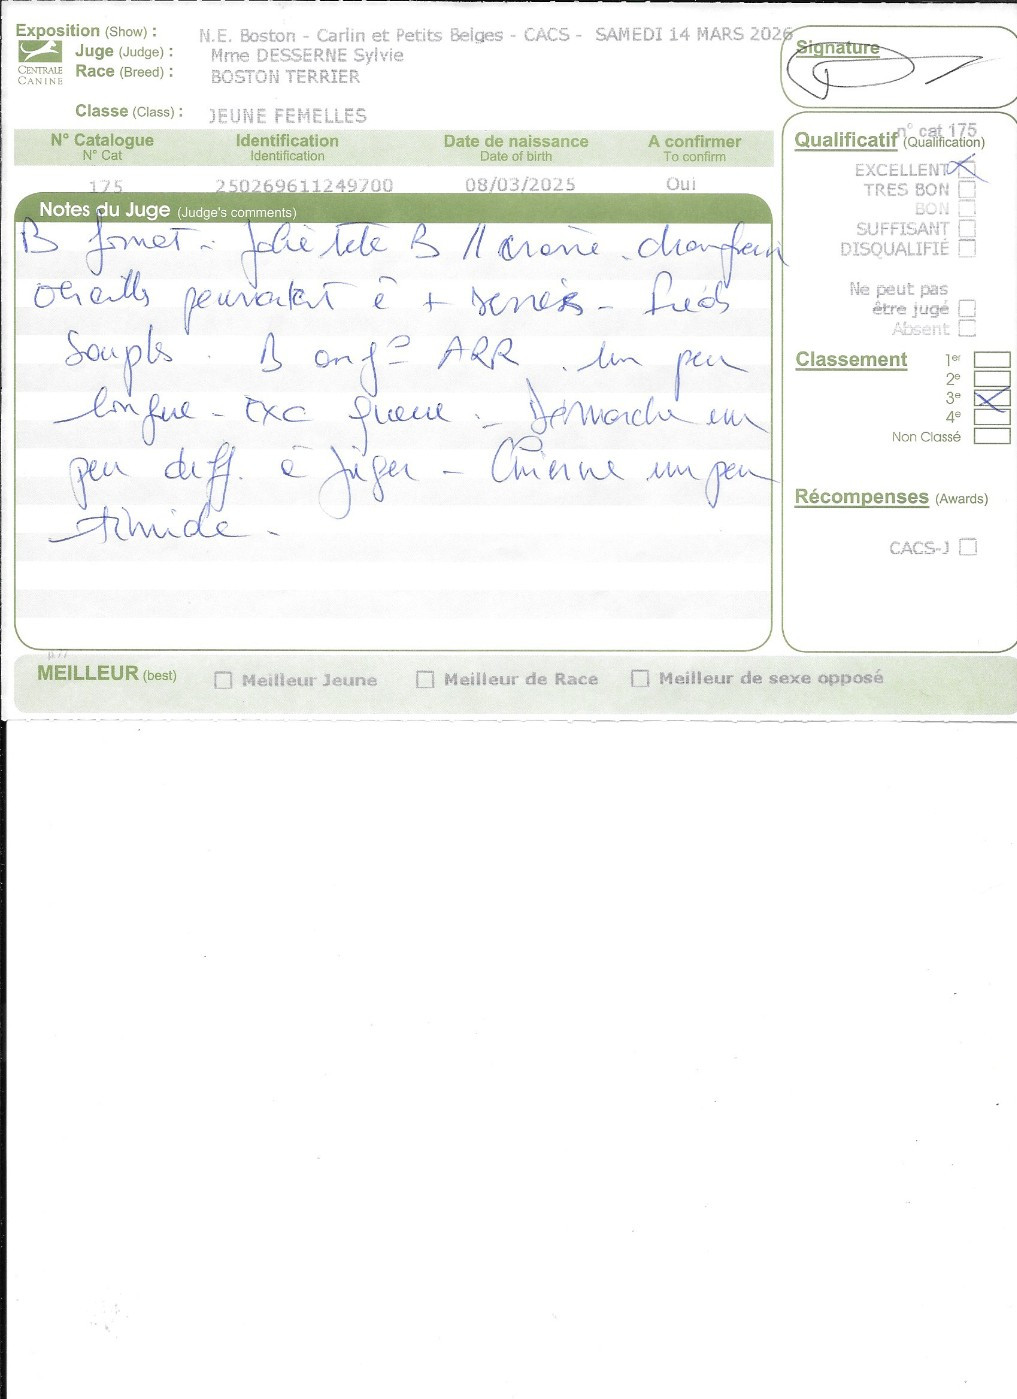 Exposition (Show) : N.E. Boston - Carlin et Petits Belges - CACS - SAMEDI 14 MARS 2026
Juge (Judge) : Mme DESSERNE Sylvie
Race (Breed) : BOSTON TERRIER
CENTRALE CANINE
Classe (Class) : JEUNE FEMELLES
Signature
N° Catalogue Identification Date de naissance A confirmer
N° Cat Identification Date of birth To confirm
175 250269611249700 08/03/2025 Oui
Notes du Juge (Judge's comments)
B format - Jolie tête B // crâne - chanfrein
oreilles pourraient ê + serrées - Pieds
souples . B ang° ARR . un peu
longue - exc queue - Démarche un
peu diff. à juger - Chienne un peu
timide -
n° cat 175
Qualificatif (Qualification)
EXCELLENT
TRES BON
BON
SUFFISANT
DISQUALIFIÉ
Ne peut pas
être jugé
Absent
Classement 1er
2e
3e
4e
Non Classé
Récompenses (Awards)
CACS-J
MEILLEUR (best) Meilleur Jeune Meilleur de Race Meilleur de sexe opposé